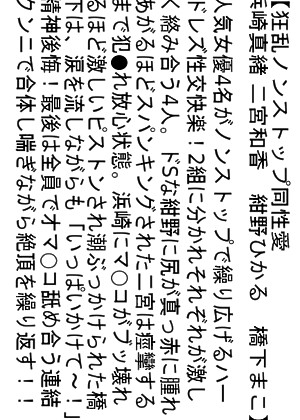 【狂乱ノンストップ同性愛
浜崎真緒 二宮和香 紺野ひかる 橋下まこ】
人気女優4名がノンストップで繰り広げるハー
ドレズ性交快楽！2組に分かれそれぞれが激し
く絡み合う4人。ドSな紺野に尻が真っ赤に腫れ
あがるほどスパンキングされた二宮は痙攣する
まで犯●れ放心状態。浜崎にマ○コがブッ壊れ
るほど激しいピストンされ潮ぶっかけられた橋
下は、涙を流しながらも「いっぱいかけて〜！」
精神後悔！最後は全員でオマ○コ舐め合う連結
クンニで合体し喘ぎながら絶頂を繰り返す！！